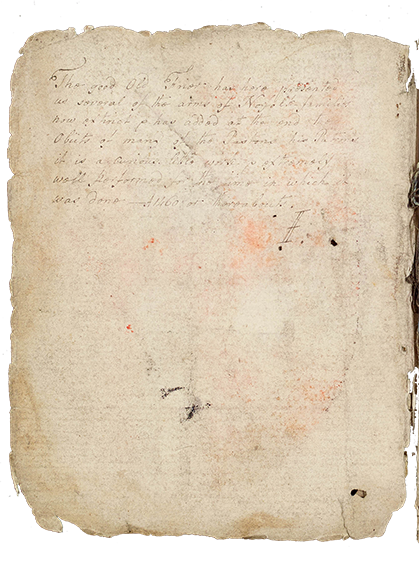 The good Old Friar has here presented
us several of the arms of Norfolk families
now extinct & has added at the end the
Obits of many of the Pastons his Patrons
it is a curious little work & extremely
well performed for the time in which it
was done — A 1460 or thereabouts.